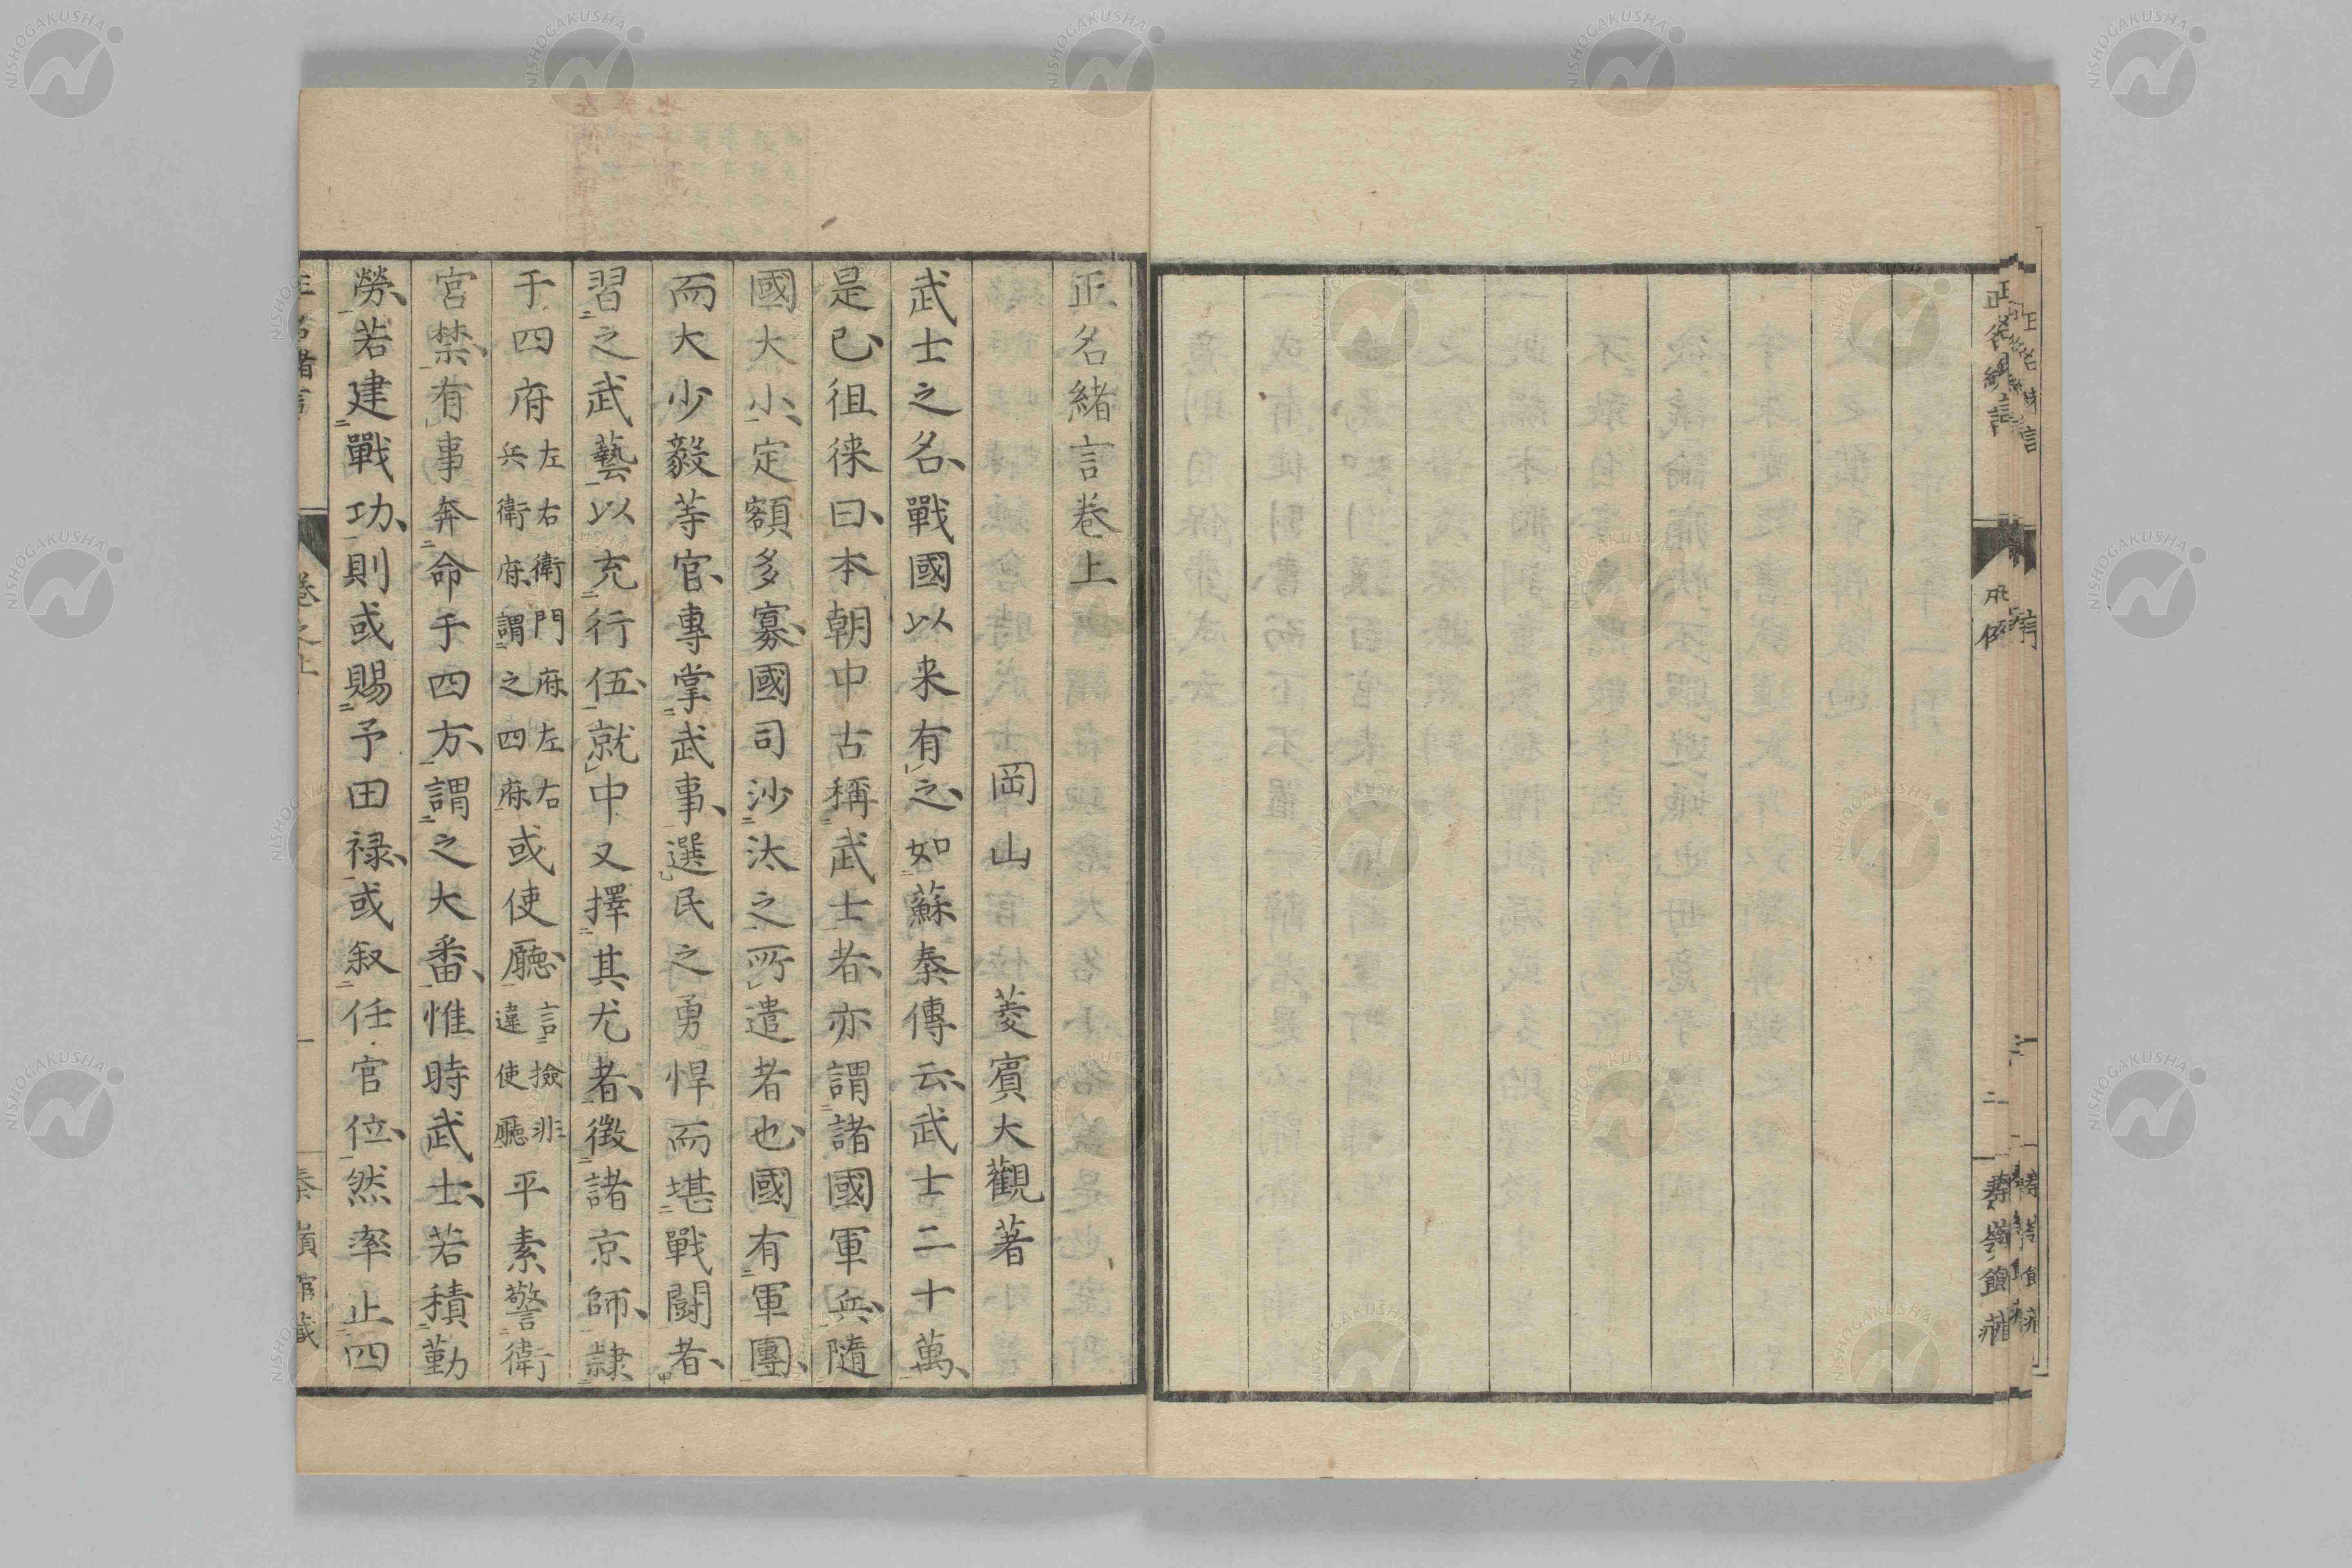 正名緒言巻上
岡山 菱賓大觀著
武士之名、戰國以来有之、如蘇秦傳云、武士二十萬、
是已、徂徠曰、本朝中古稱武士者、亦謂諸國軍兵、隨
國大小、定額多寡、國司沙汰之所遣者也、國有軍團、
而大少毅等官、專掌武事、選民之勇悍而堪戰鬪者、
習之武藝、以充行伍、就中又擇其尤者、徴諸京師、隷
于四府左右衛門府、左右兵衛府、謂之四府、或使廳、言撿非違使廳、平素警衛
宮禁、有事奔命于四方、謂之大番、惟時武士、若積勤
勞、若建戰功、則或賜予田禄、或叙任官位、然率止四
正名緒言 巻之上 一
NISHOGAKUSHA